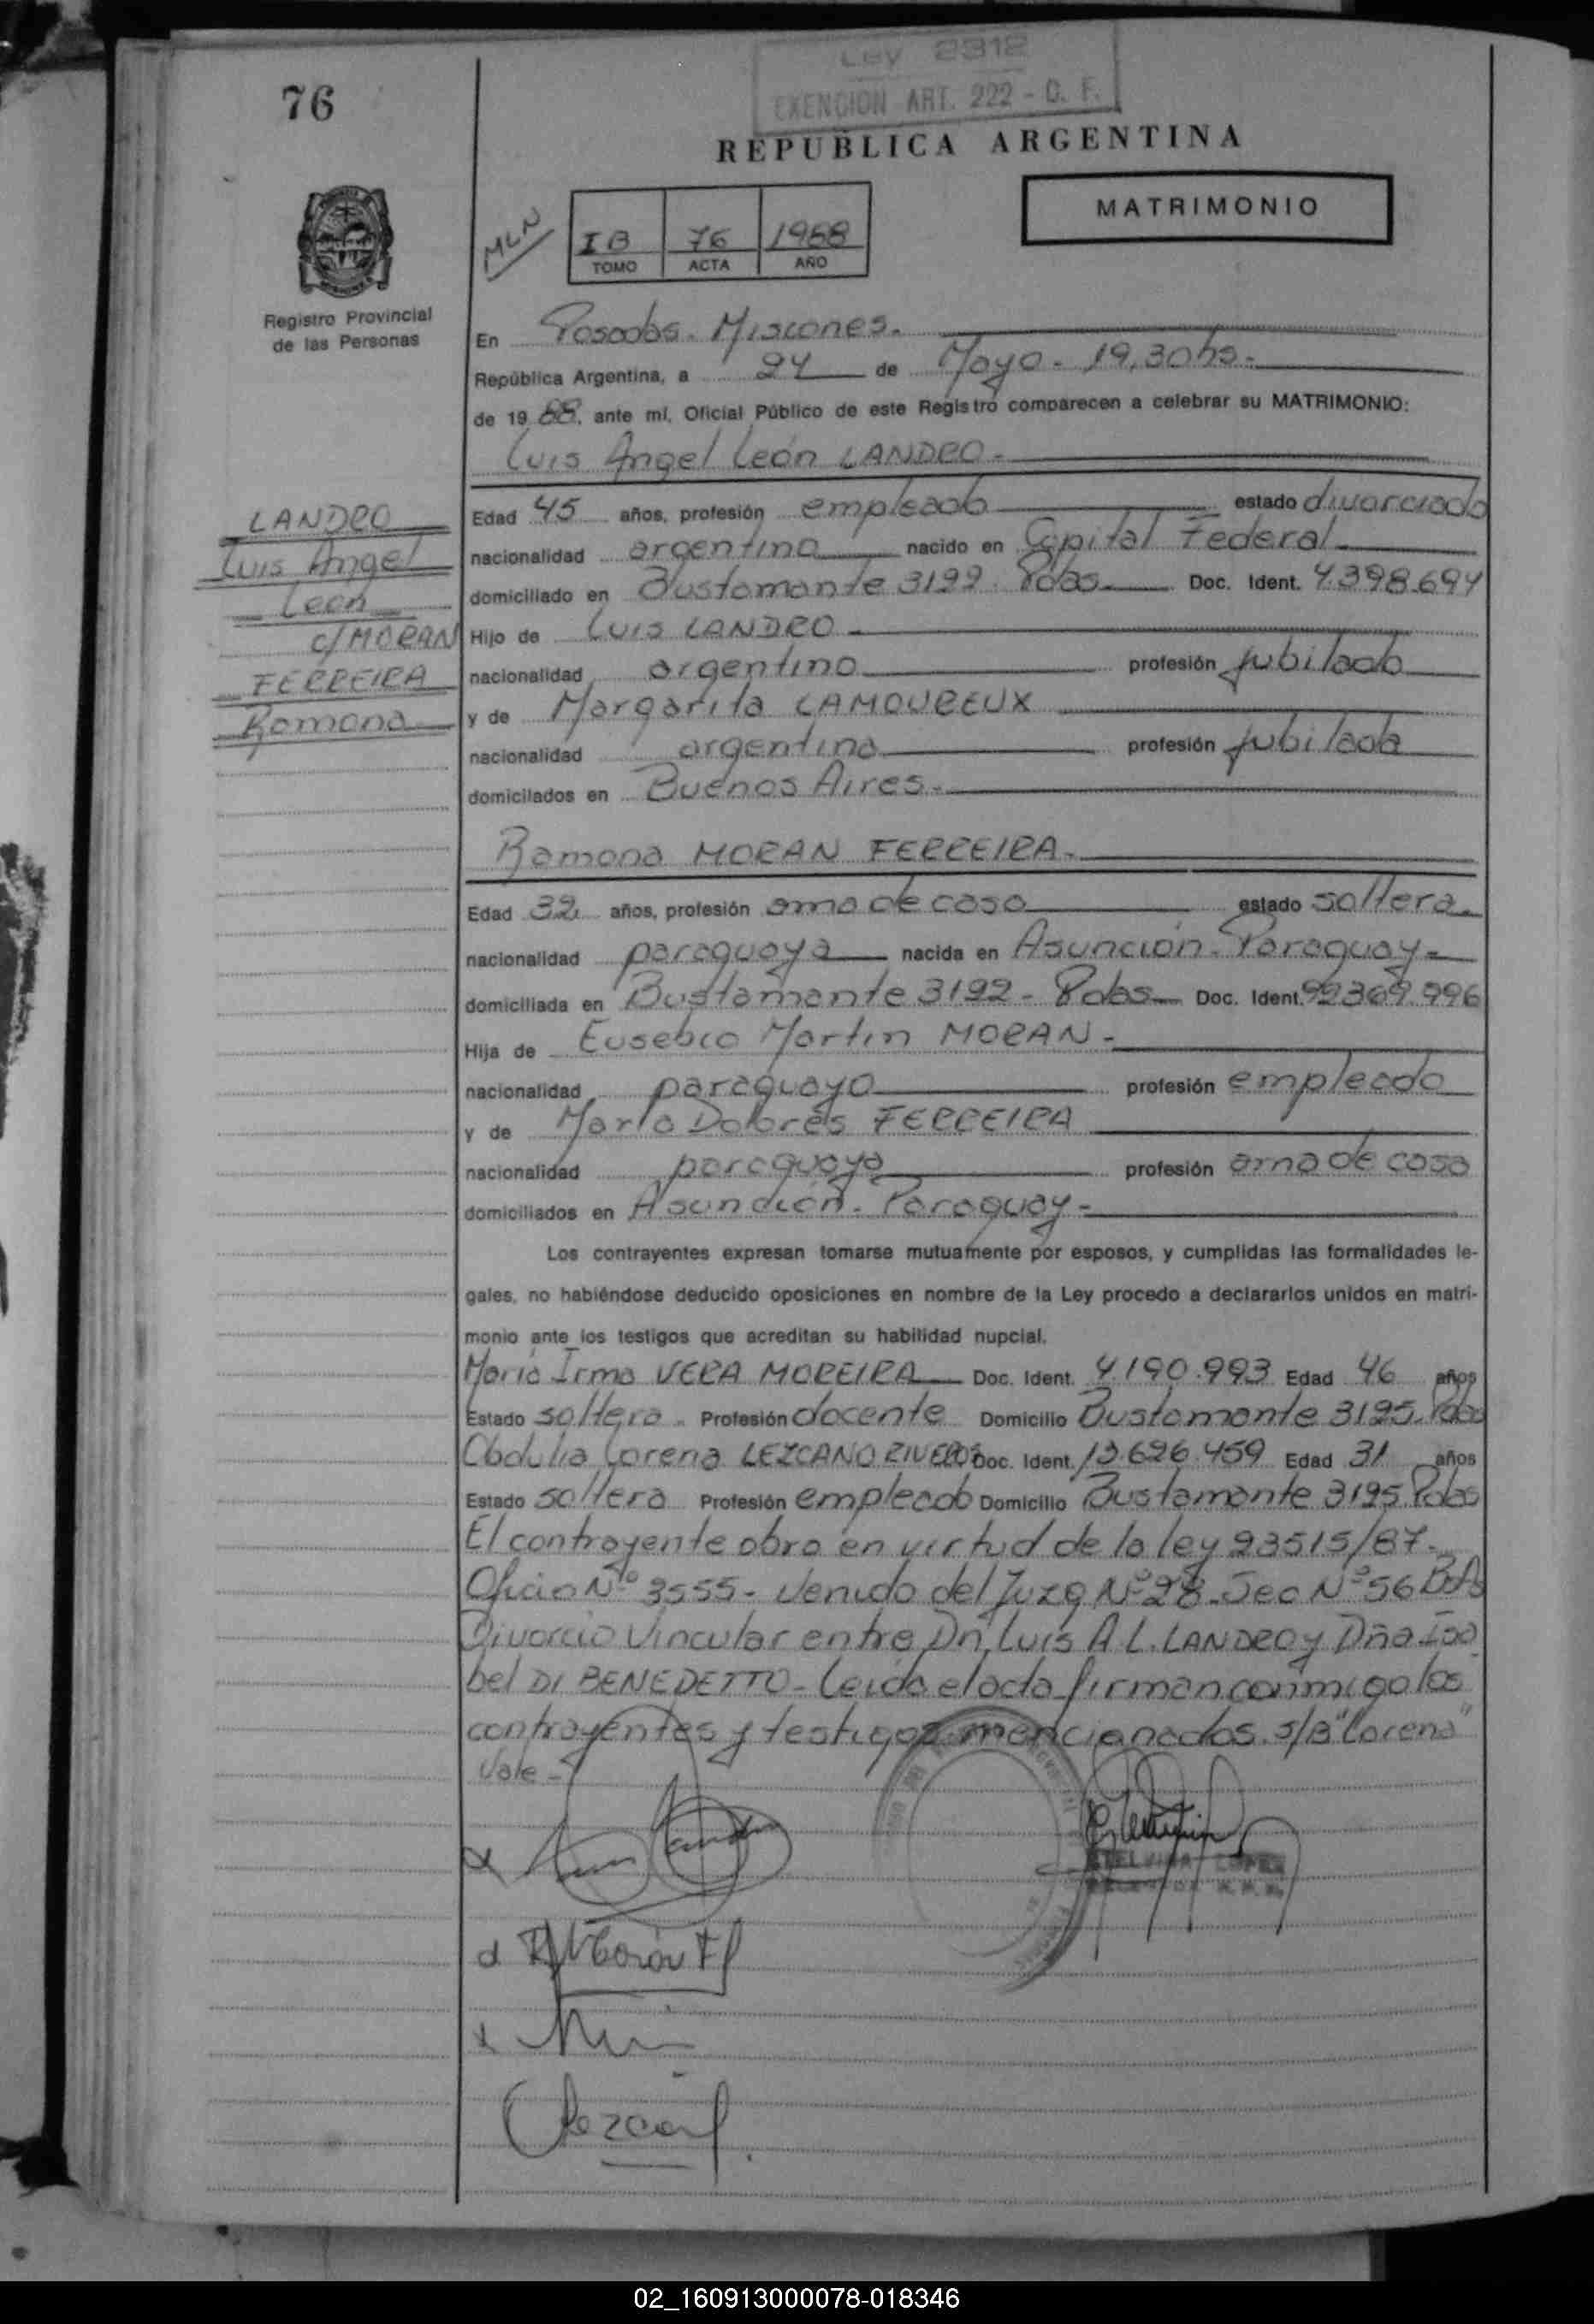 Ley 2312
EXENCION ART. 222 - C. F.
76
REPUBLICA ARGENTINA
MATRIMONIO
MLN
I B 76 1988
TOMO ACTA AÑO
Registro Provincial
de las Personas
En Posadas. Misiones.
República Argentina, a 24 de Mayo - 19,30 hs.
de 19 88, ante mí, Oficial Público de este Registro comparecen a celebrar su MATRIMONIO:
Luis Angel León LANDRO.
LANDRO
Luis Angel
León
c/MORAN
FERREIRA
Ramona
Edad 45 años, profesión empleado estado divorciado
nacionalidad argentina nacido en Capital Federal
domiciliado en Bustamante 3192 Pdas Doc. Ident. 4.398.694
Hijo de Luis LANDRO
nacionalidad argentino profesión jubilado
y de Margarita LAMOUREUX
nacionalidad argentina profesión jubilada
domicilados en Buenos Aires.
Ramona MORAN FERREIRA.
Edad 32 años, profesión ama de casa estado soltera
nacionalidad paraguaya nacida en Asunción - Paraguay
domiciliada en Bustamante 3192 - Pdas Doc. Ident. 92369.996
Hija de Eusebio Martin MORAN -
nacionalidad paraguayo profesión empleado
y de María Dolores FERREIRA
nacionalidad paraguaya profesión ama de casa
domiciliados en Asunción - Paraguay -
Los contrayentes expresan tomarse mutuamente por esposos, y cumplidas las formalidades le-
gales, no habiéndose deducido oposiciones en nombre de la Ley procedo a declararlos unidos en matri-
monio ante los testigos que acreditan su habilidad nupcial.
María Irma VERA MOREIRA Doc. Ident. 4.190.993 Edad 46 años
Estado soltera Profesión docente Domicilio Bustamante 3195. Pdas
Obdulia Lorena LEZCANO RIVEROS Doc. Ident. 13.626.459 Edad 31 años
Estado soltera Profesión empleado Domicilio Bustamante 3195 Pdas
El contrayente obra en virtud de la ley 23515/87-
Oficio Nº 3555 - Venido del Juzg Nº 28 - Sec Nº 56 BsAs
Divorcio Vincular entre Dn. Luis A L. LANDRO y Dña Isa
bel DI BENEDETTO - Leída el acta firman conmigo los
contrayentes y testigos mencionados. S/B "Lorena"
Vale -
ETELVINA LOPEZ
R Moran F
Lezcano
02_160913000078-018346